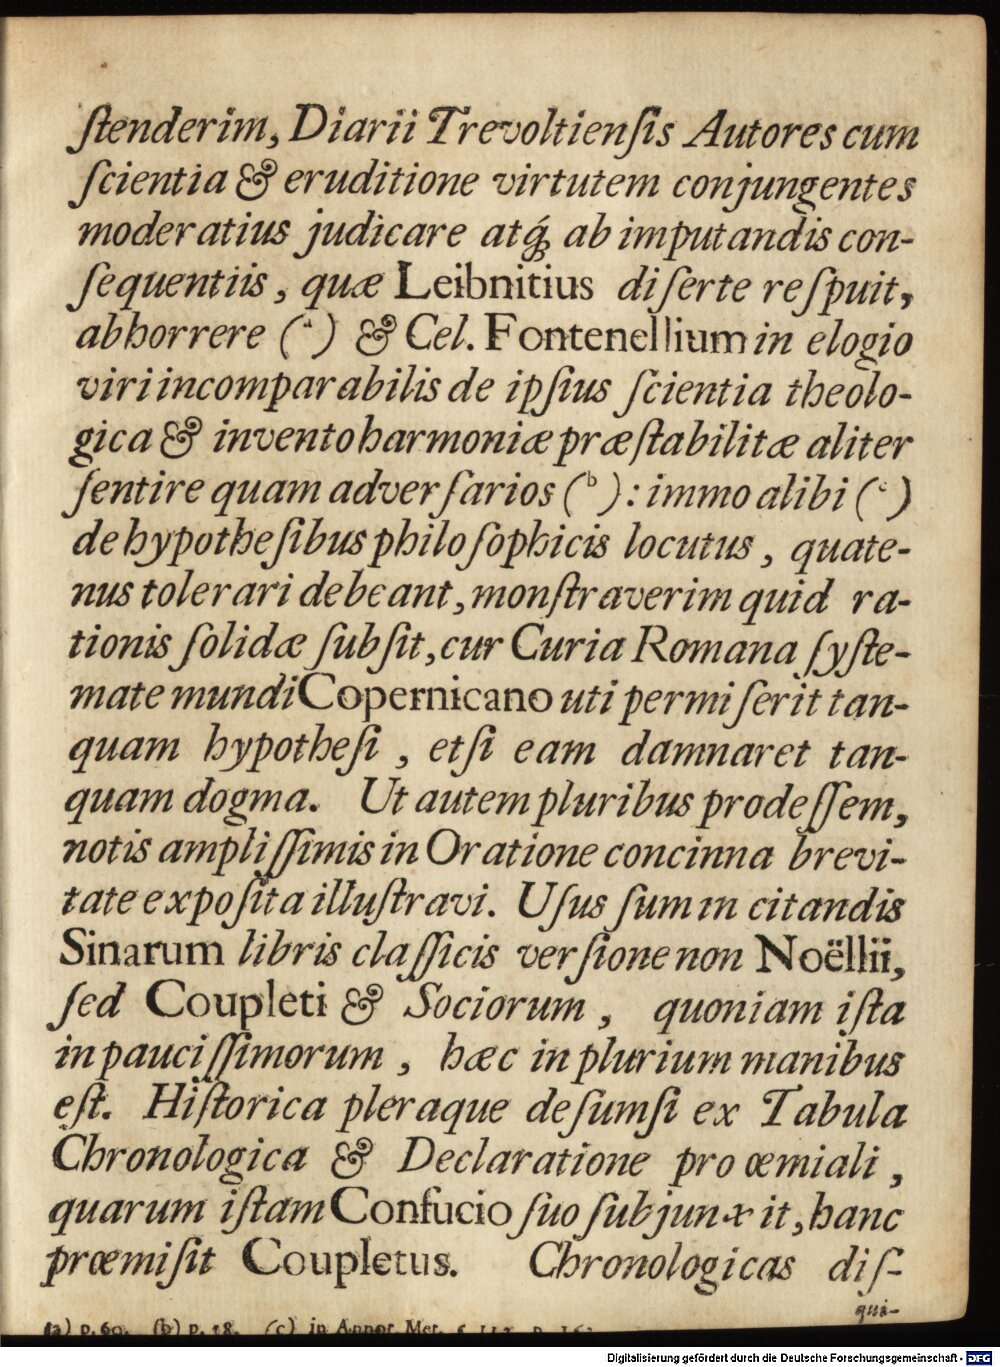 ſtenderim, Diarii Trevoltienſis Autores cum
ſcientia & eruditione virtutem conjungentes
moderatius judicare atq́; ab imputandis con-
ſequentiis, quæ Leibnitius diſerte reſpuit,
abhorrere (a) & Cel. Fontenellium in elogio
viri incomparabilis de ipſius ſcientia theolo-
gica & invento harmoniæ præſtabilitæ aliter
ſentire quam adverſarios (b): immo alibi (c)
de hypotheſibus philoſophicis locutus, quate-
nus tolerari debeant, monſtraverim quid ra-
tionis ſolidæ ſubſit, cur Curia Romana ſyſte-
mate mundi Copernicano uti permiſerit tan-
quam hypotheſi, etſi eam damnaret tan-
quam dogma. Ut autem pluribus prodeſſem,
notis ampliſſimis in Oratione concinna brevi-
tate expoſita illuſtravi. Uſus ſum in citandis
Sinarum libris claſſicis verſione non Noëllii,
ſed Coupleti & Sociorum, quoniam iſta
in pauciſſimorum, hæc in plurium manibus
eſt. Hiſtorica pleraque deſumſi ex Tabula
Chronologica & Declaratione proœmiali,
quarum iſtam Confucio ſuo ſubjunxit, hanc
præmiſit Coupletus. Chronologicas diſ-
qui-
(a) p. 60. (b) p. 18. (c) in Annot. Met.
Digitalisierung gefördert durch die Deutsche Forschungsgemeinschaft - DFG